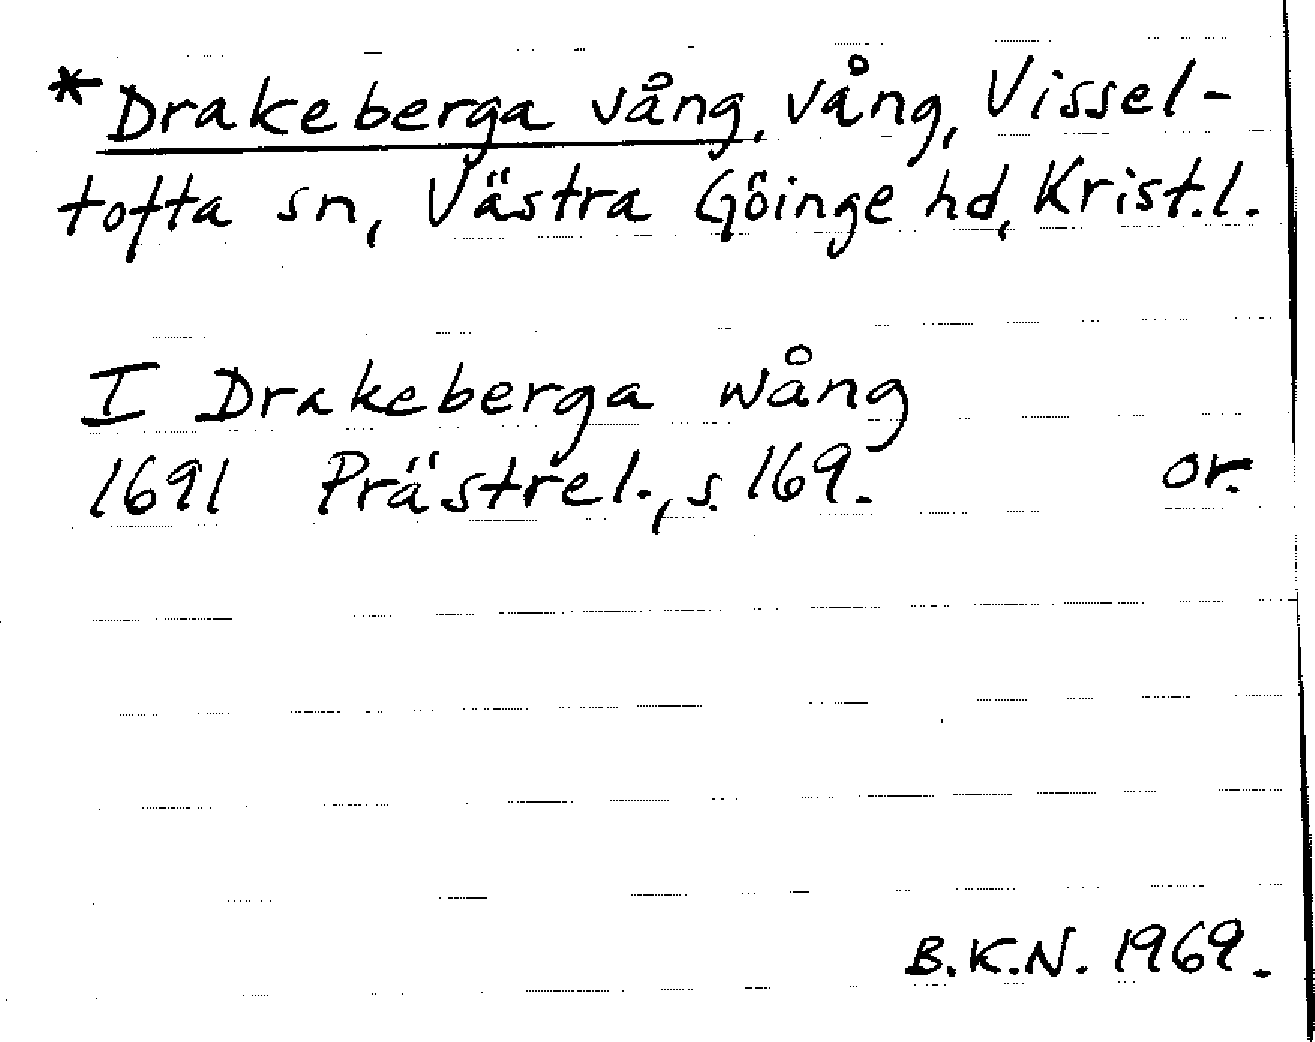 *Drakeberga vång, vång, Vissel-
tofta sn, Västra Göinge hd, Krist.l.
I Drakeberga wång
1691 Prästrel., s. 169. or.
B.K.N. 1969.